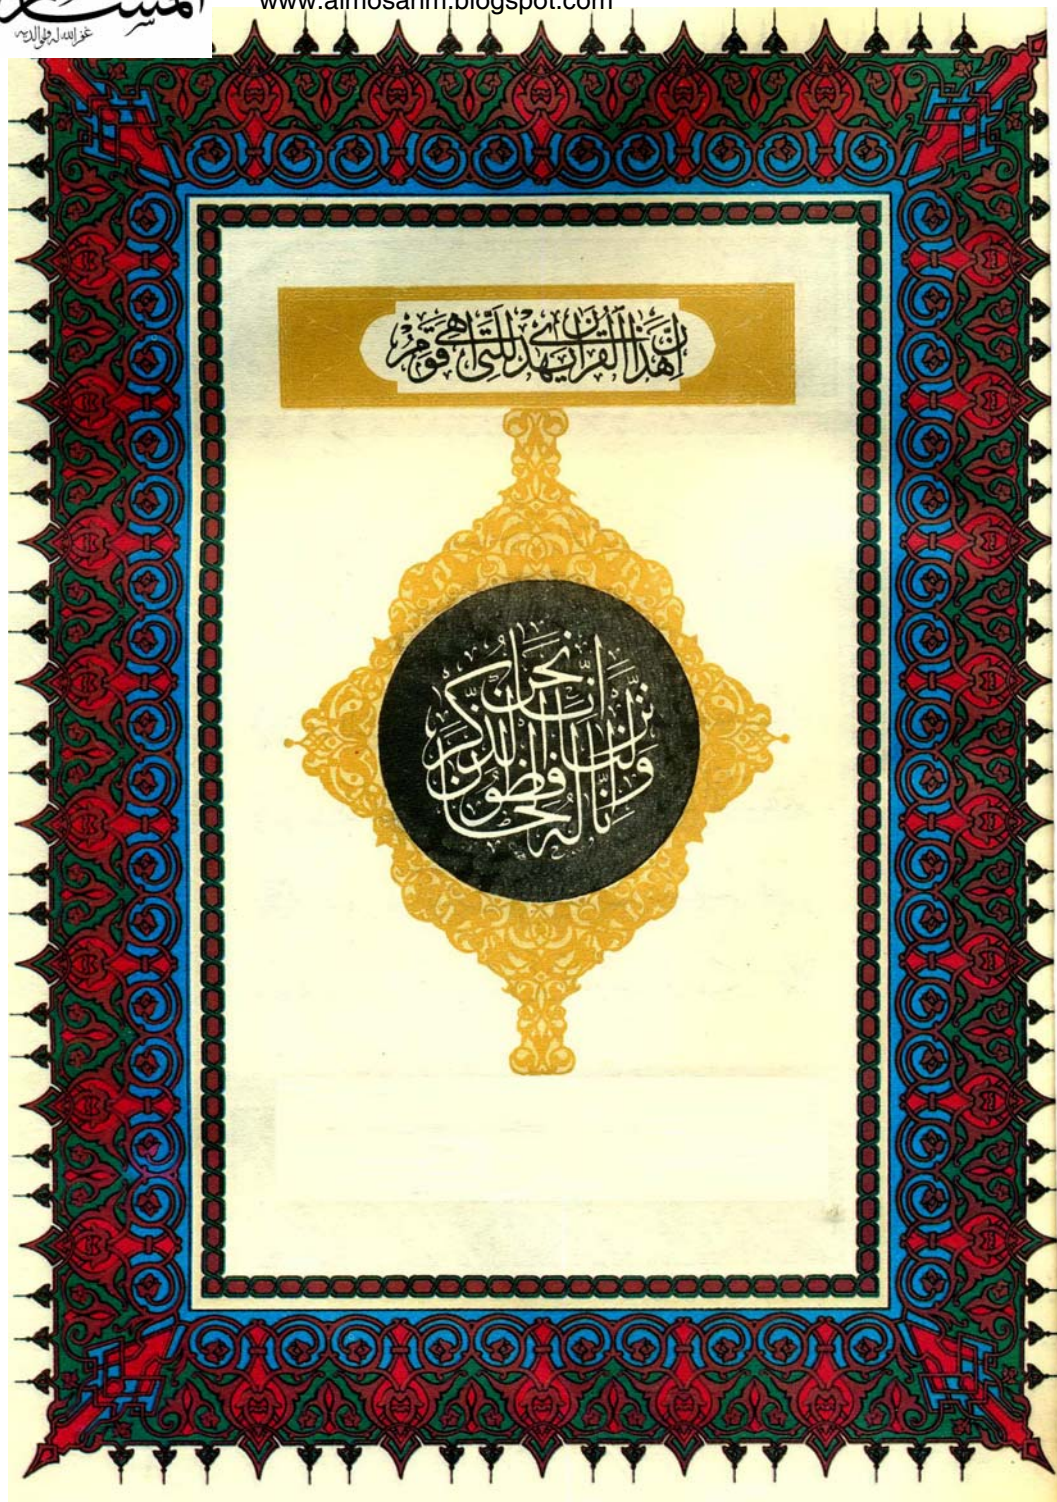 www.almosahm.blogspot.com
غفر الله له ولوالديه
إن هذا القرآن يهدي للتي هي أقوم
إنا نحن نزلنا الذكر وإنا له لحافظون